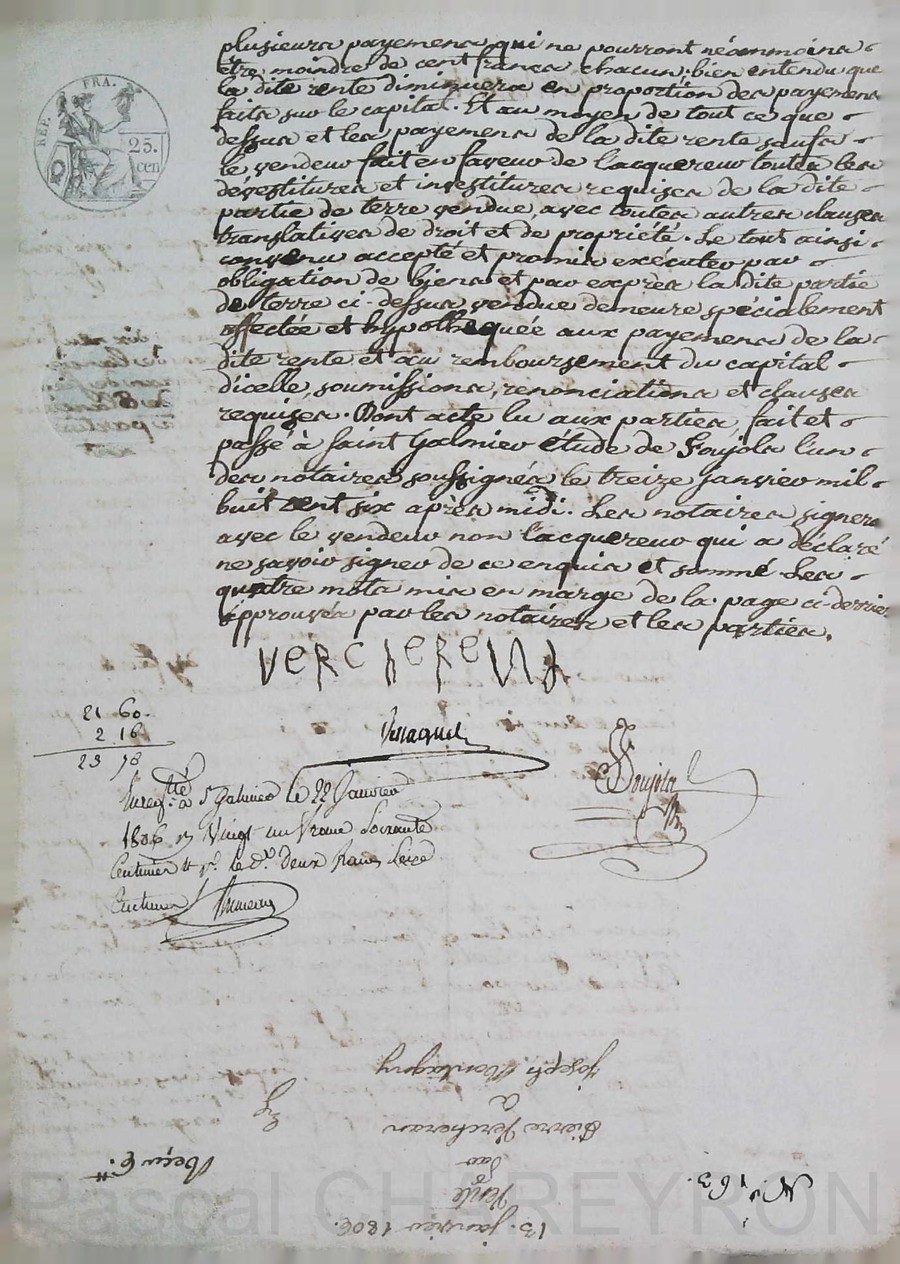 REP. FRA.
25.
cen
plusieurs payemens qui ne pourront néammoins
être moindre de cent francs chacun, bien entendu que
la dite rente diminuera en proportion des payemens
faits sur le capital. Et au moyen de tout ce que
dessus et les payemens de la dite rente saufs
le vendeur fait en faveur de l'acquereur toutes les
devestitures et investitures requises de la dite
partie de terre vendue, avec toutes autres clauses
translatives de droit et de propriété. Le tout ainsi
convenu accepté et promis exécuter par
obligation de biens et par exprès la dite partie
de terre ci-dessus vendue demeure spécialement
affectée et hypothequée aux payemens de la
dite rente et au remboursement du capital
dicelle, soumissions, renonciations et clauses
requises. Dont acte lu aux parties, fait et
passé à Saint Galmier étude de Soujols l'un
des notaires soussignés le treize janvier mil
huit cent six après midi. Les notaires signers
avec le vendeur non l'acquereur qui a déclaré
ne savoir signer de ce enquis et sommé. Les
quatre mots mis en marge de la page ci-derrier
approuvés par les notaires et les parties.
VERCHEREND
21 60.
2 16
23 76
Soujols
Enregtré à St Galmier le 22 Janvier
1806 Vingt un francs Soixante
Centimes et pr. le Dme deux francs Seize
Centimes
N.° 163.
13. janvier 1806.
Vente
par
Pierre Vercheran
à
Joseph Montagny
Reçu 6.#
Pascal CHAREYRON